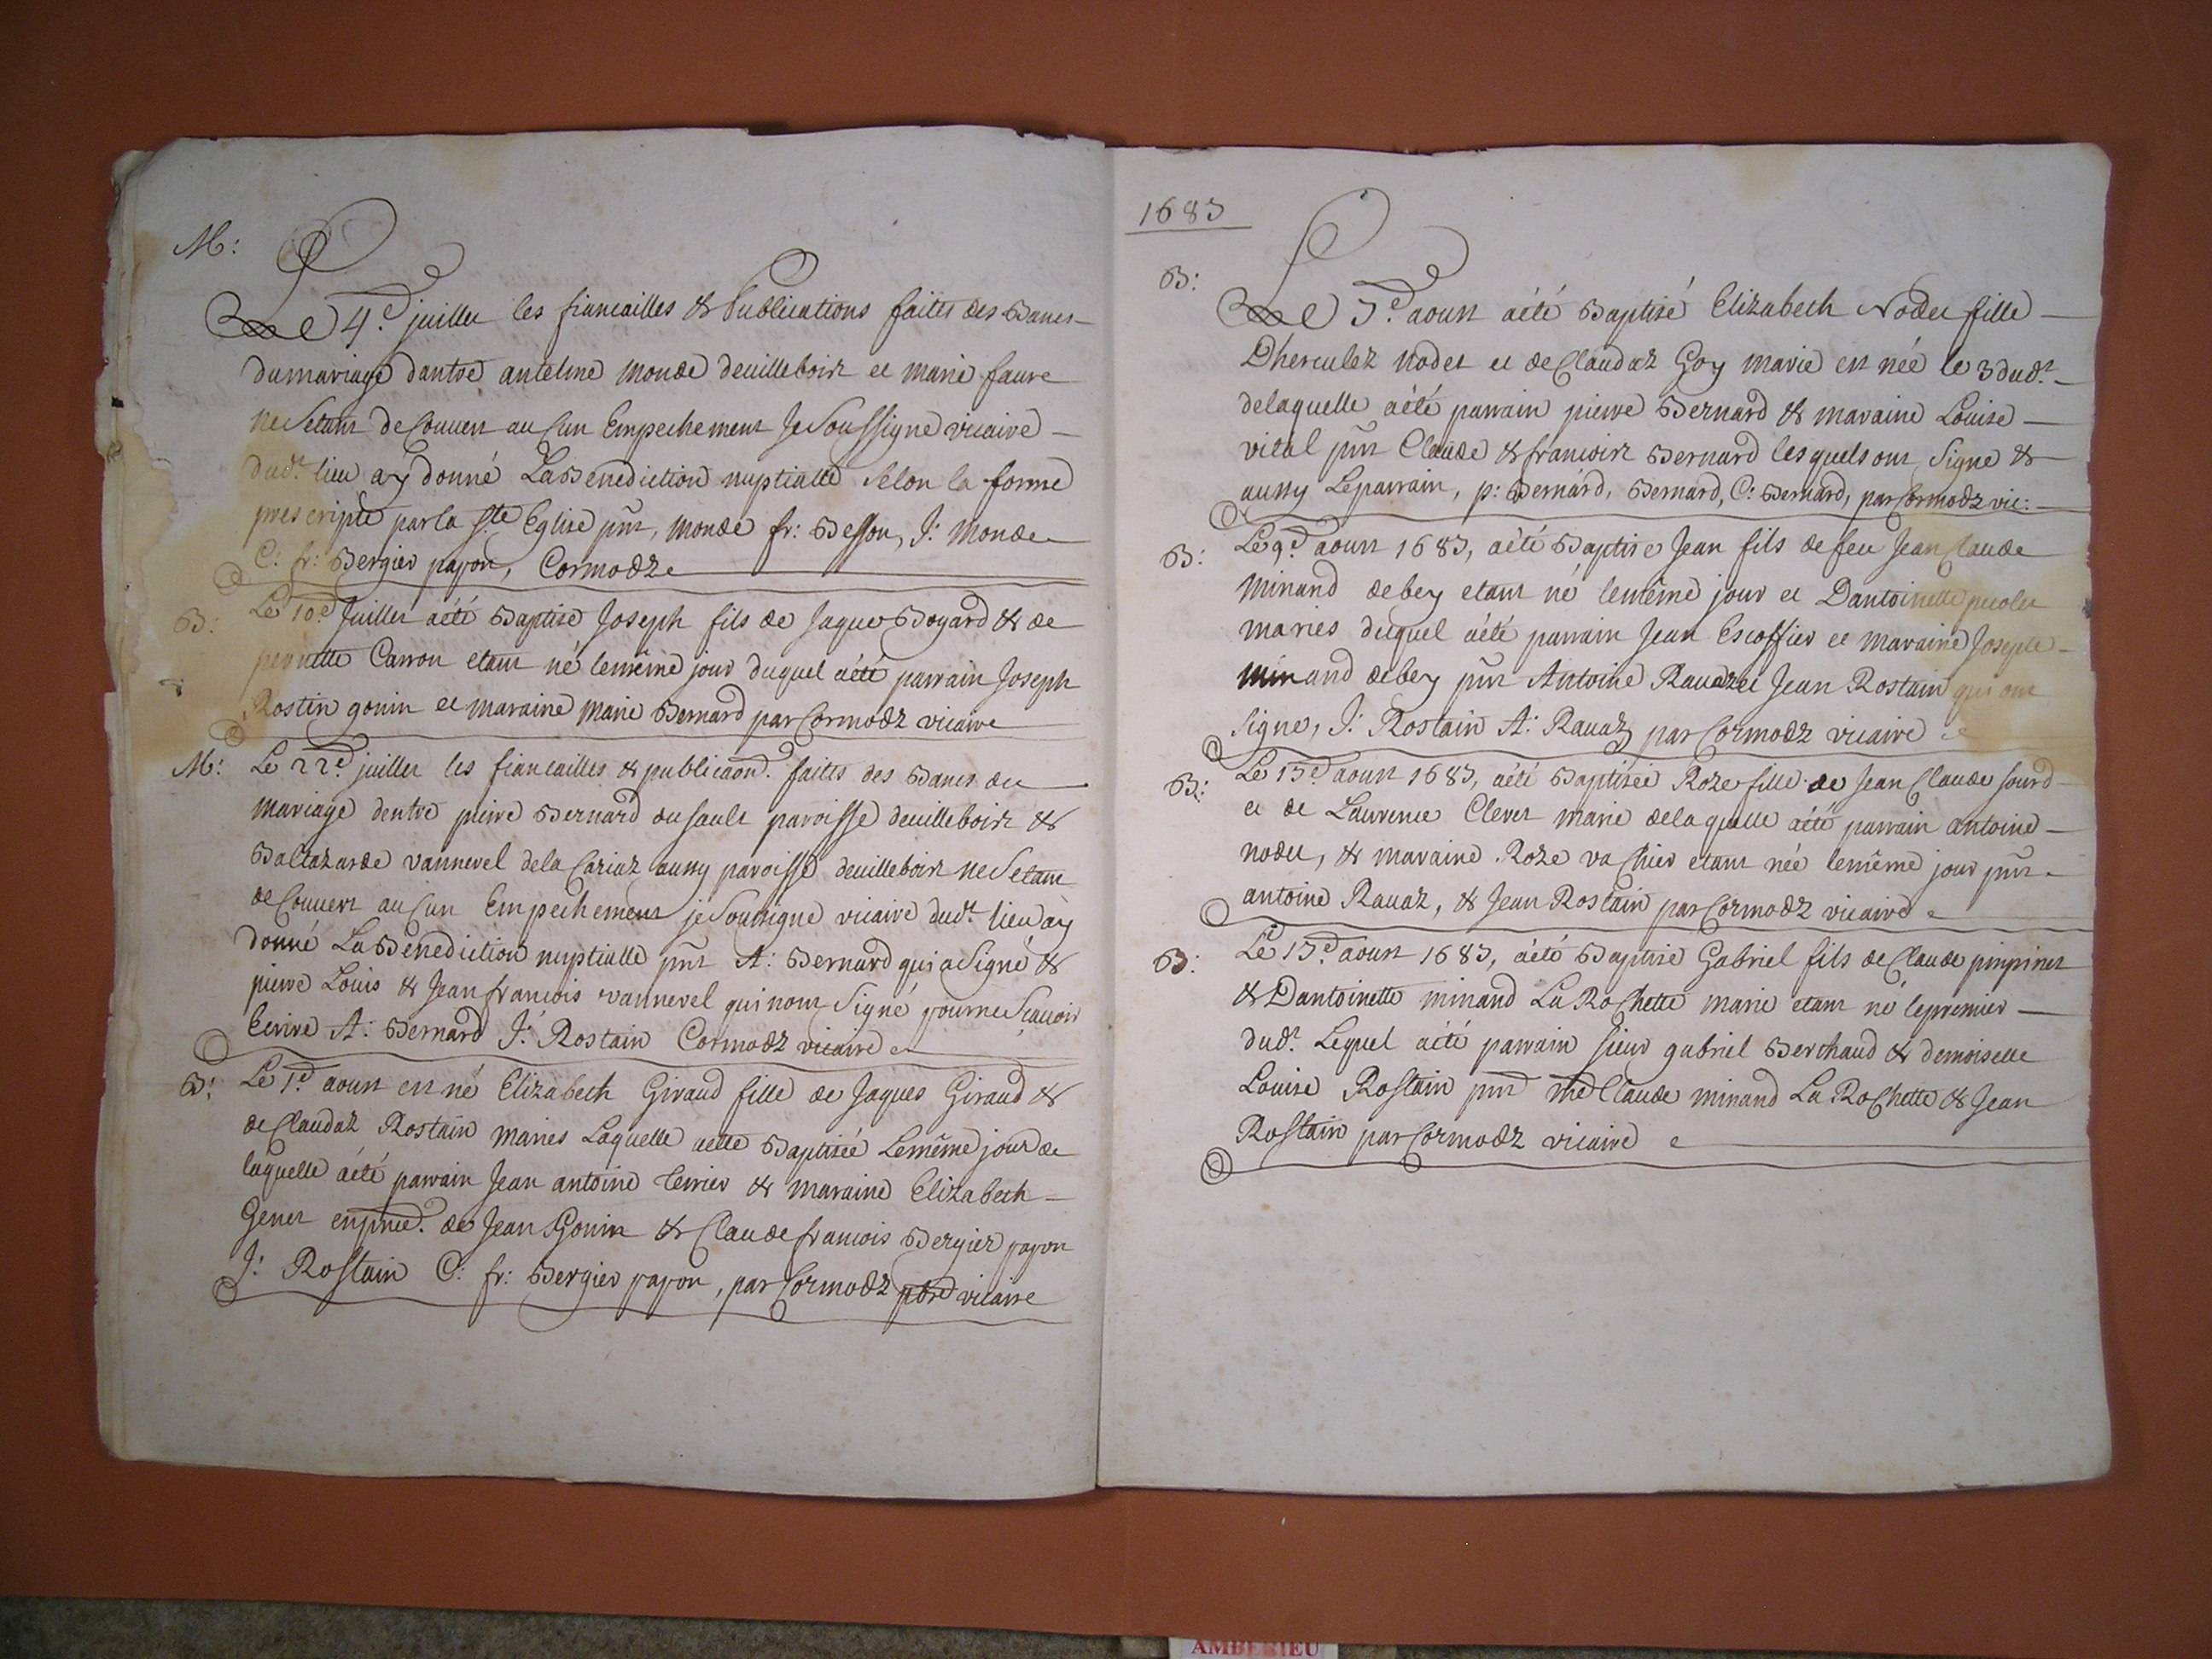 M:
Le 4.e juillet les fiancailles & Publications faites des Bancs
du mariage dantre antelme monde deuilleboix et marie faure
ne Setant deCouuert auCun Empechement Je Soussigne vicaire
dud.t lieu ay donné La Benediction nuptialle Selon la forme
prescripte par la S.te Eglise pnt, monde fr: Besson, J: Monde
C: fr: Bergier payon, Cormodz
B: Le 10.e Juillet aété Baptisé Joseph fils de Jaque Bogard & de
pernette Carron etant né lemême jour duquel aété parrain Joseph
Rostin gonin et maraine marie Bernard par Cormodz vicaire
M: Le 22.e juillet les fiancailles & publicaon.d faites des Bancs du
mariage dentre pierre Bernard du sault paroisse deuilleboix &
Baltazarde vannevel dela Cariaz aussy paroisse deuilleboix ne Setant
deCouuert auCun Empechement je Soussigné vicaire dud.t lieu ay
donné La Benediction nuptialle pnt A: Bernard qui a Signé &
pierre Louis & Jean francois vannevel qui nont Signé pour ne Scauoir
Ecrire A: Bernard J: Rostain Cormodz vicaire
B: Le 1.e aoust est né Elizabeth Giraud fille de Jaques Giraud &
de Claudaz Rostain maries Laquelle aette Baptisée Lemême jour de
laquelle aété parrain Jean antoine terrier & maraine Elizabeth
Genet en pnce. de Jean Gonin & Claude francois Bergier payon
J: Rostain C: fr: Bergier payon, par Cormodz vicaire
1683
B:
Le 5.e aoust aété Baptisé Elizabeth Nodet fille
Dherculez nodet et de Claudaz Goy marie est née le 3 dud.t
delaquelle aété parrain pierre Bernard & maraine Louise
vital pnt Claude & francois Bernard lesquels ont Signe &
aussy Le parrain, p: Bernard, Bernard, C: Bernard, par Cormodz vic:
B: Le 9.e aoust 1683, aété Baptise Jean fils de feu Jean Claude
minand debey etant né lemême jour et Dantoinette perolet
maries duquel aété parrain Jean Escoffier et maraine Josepte
minand debey pnt Antoine Rauaz et Jean Rostain qui ont
Signe, J: Rostain A: Rauaz par Cormodz vicaire
B: Le 13.e aoust 1683, aété Baptisée Roze fille de Jean Claude Jourd
et de Laurence Clevet marie delaquelle aété parrain antoine
nodet, & maraine Roze vaChier etant née lemême jour pnt
antoine Rauaz, & Jean Rostain par Cormodz vicaire
B: Le 15.e aoust 1683, aété Baptisé Gabriel fils de Claude pinpinet
& Dantoinette minand La RoChette marie etant né lepremier
dud.t Lequel aété parrain Sieur gabriel Berthaud & demoiselle
Louise Rostain pnt me Claude minand La RoChette & Jean
Rostain par Cormodz vicaire
AMBERIEU